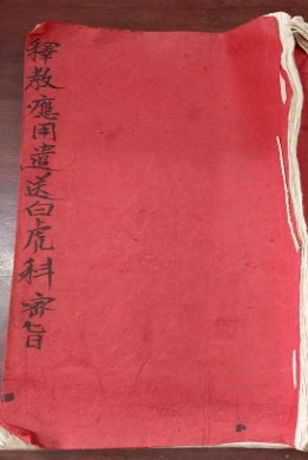 釋教應用遣送白虎科密旨